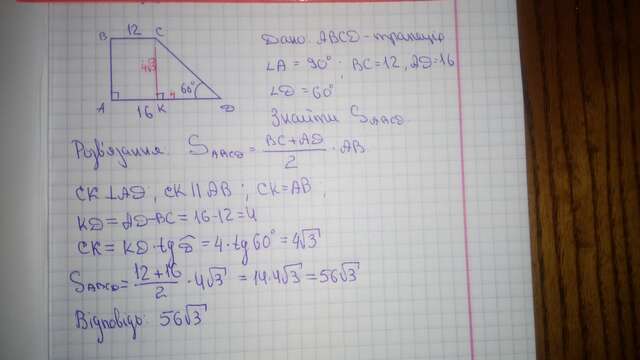 B 12 C
4√3
60°
A 16 K 4 D
Дано: ABCD - трапеція
∠A = 90°; BC = 12, AD = 16
∠D = 60°
Знайти S ABCD
Розв'язання. S ABCD = (BC + AD)/2 · AB
CK ⊥ AD, CK || AB; CK = AB;
KD = AD - BC = 16 - 12 = 4
CK = KD · tg D = 4 · tg 60° = 4√3
S ABCD = (12 + 16)/2 · 4√3 = 14 · 4√3 = 56√3
Відповідь: 56√3